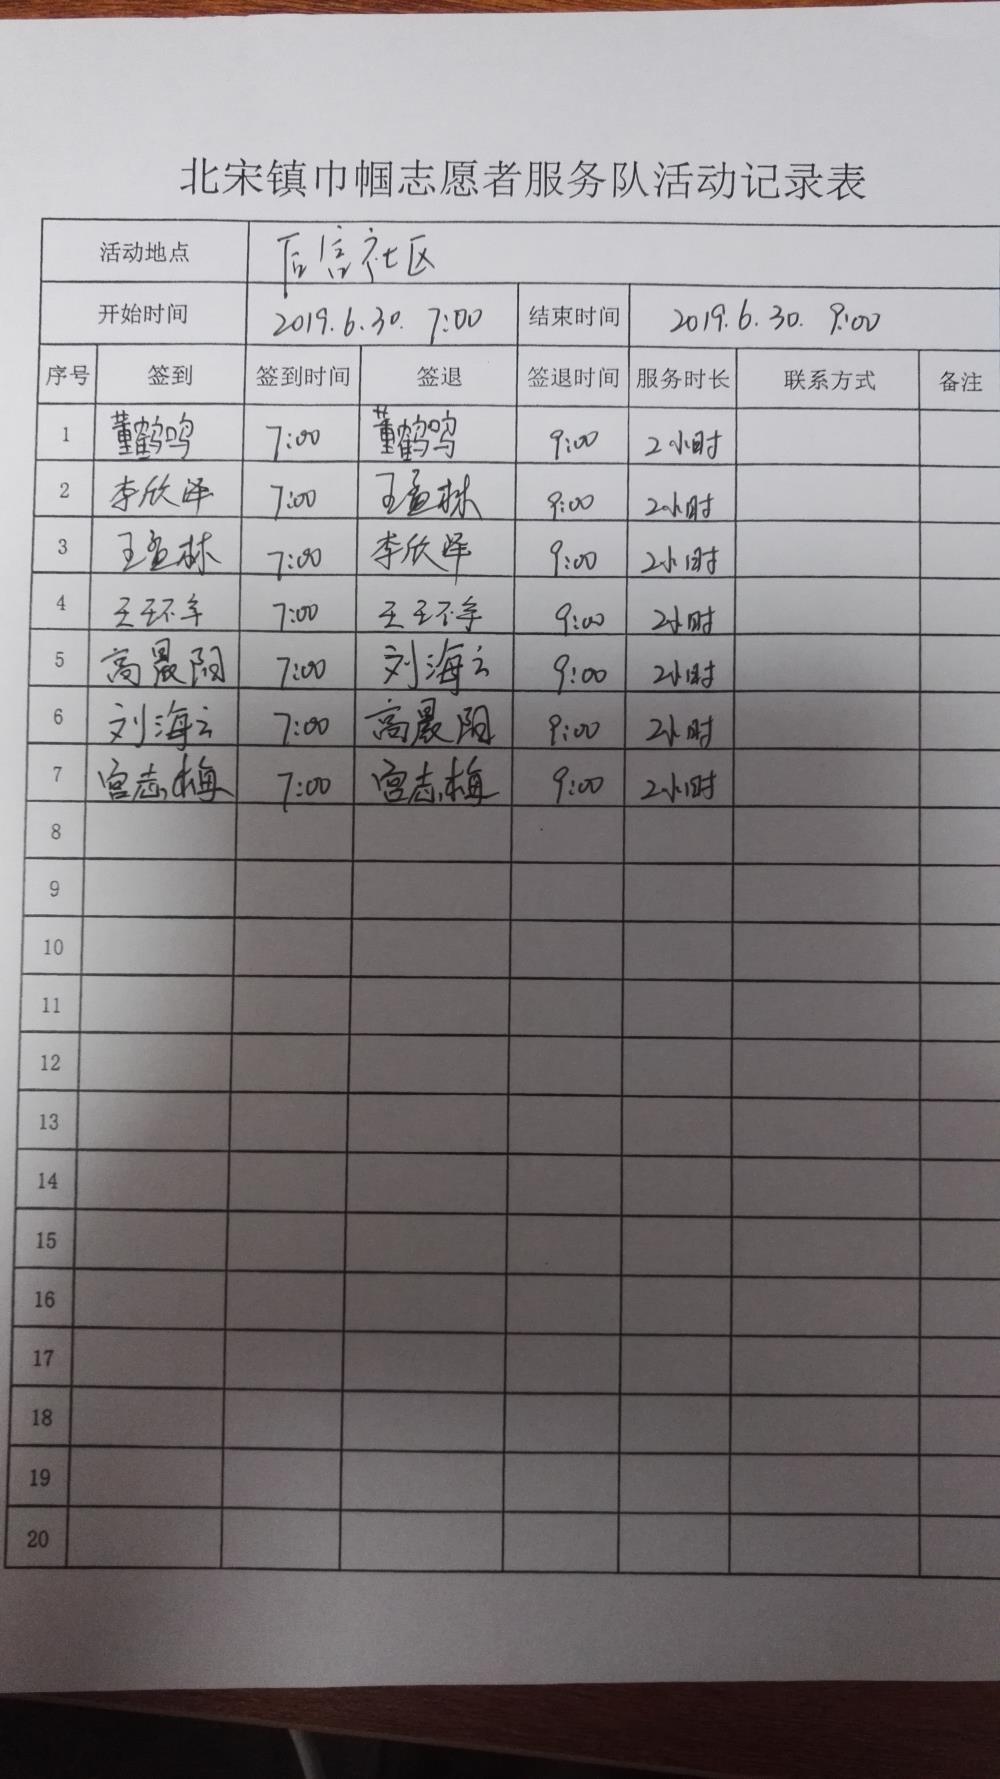 北宋镇巾帼志愿者服务队活动记录表
活动地点 后信社区
开始时间 2019.6.30. 7:00 结束时间 2019.6.30. 9:00
序号 签到 签到时间 签退 签退时间 服务时长 联系方式 备注
1 董鹤鸣 7:00 董鹤鸣 9:00 2小时
2 李欣泽 7:00 王孟林 9:00 2小时
3 王孟林 7:00 李欣泽 9:00 2小时
4 7:00 9:00 2小时
5 高晨阳 7:00 刘海云 9:00 2小时
6 刘海云 7:00 高晨阳 9:00 2小时
7 宫志梅 7:00 宫志梅 9:00 2小时
8
9
10
11
12
13
14
15
16
17
18
19
20